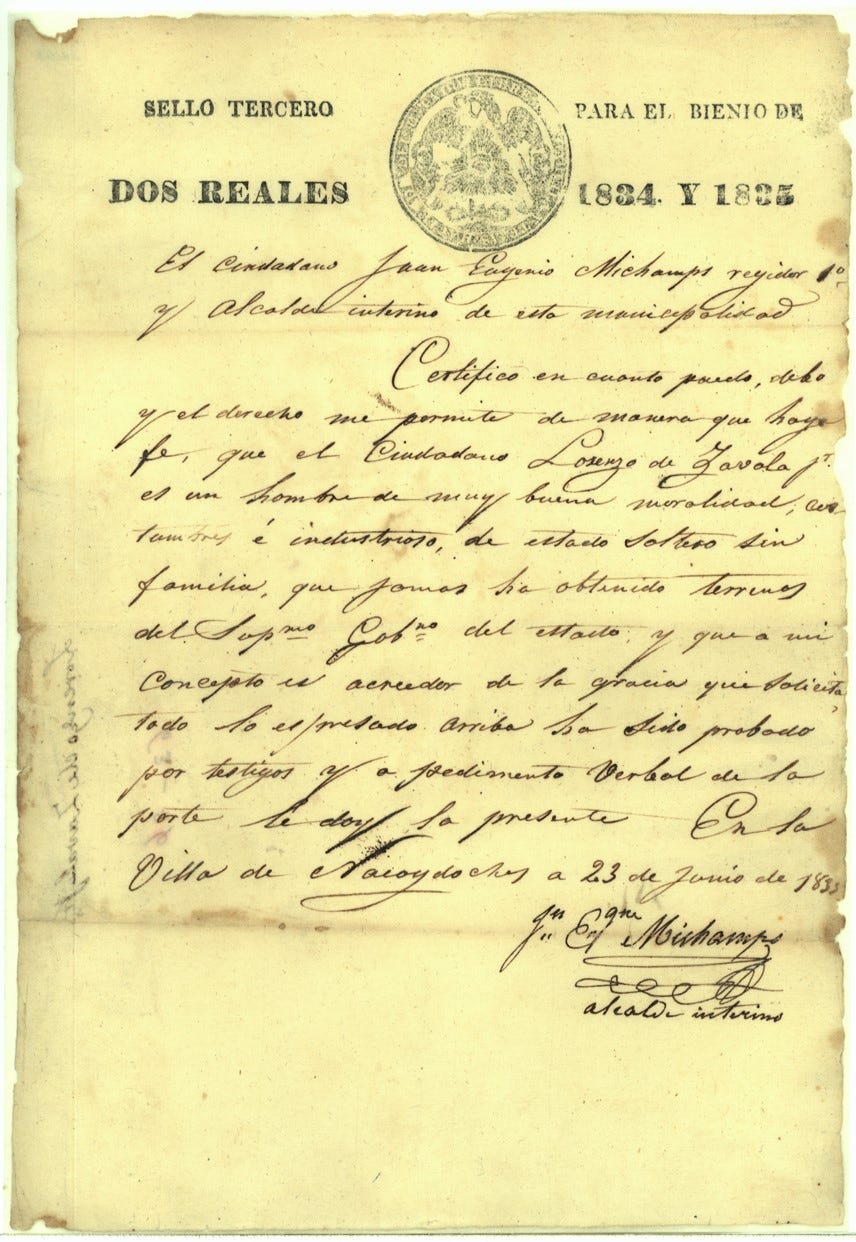 SELLO TERCERO PARA EL BIENIO DE
DOS REALES 1834. Y 1835
El Ciudadano Juan Eugenio Michamps regidor 1º
y Alcalde interino de esta municipalidad
Certifico en cuanto puedo, debo
y el derecho me permite de manera que haga
fe, que el Ciudadano Lorenzo de Zavala jr.
es un hombre de muy buena moralidad, cos
tumbres é industrioso, de estado soltero sin
familia, que jamas ha obtenido terrenos
del Supmo Gobno del estado, y que a mi
concepto es acreedor de la gracia que solicita,
todo lo espresado arriba ha sido probado
por testigos y a pedimento verbal de la
parte le doy la presente En la
Villa de Nacogdoches a 23 de Junio de 1835
Jn Egne Michamps
alcalde interino
Lorenzo de Zavala